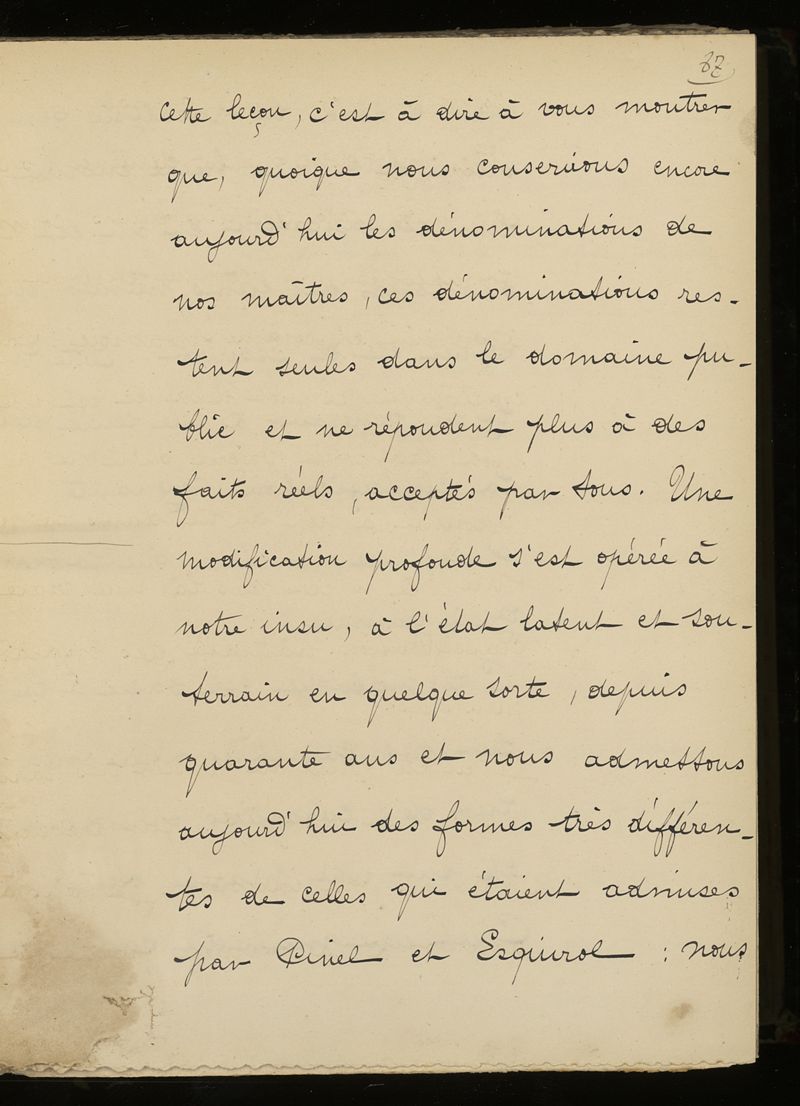 87
cette leçon, c'est à dire à vous montrer
que, quoique nous conservions encore
aujourd'hui les dénominations de
nos maîtres, ces dénominations res-
tent seules dans le domaine pu-
blic et ne répondent plus à des
faits réels, acceptés par tous. Une
modification profonde s'est opérée à
notre insu, à l'état latent et sou-
terrain en quelque sorte, depuis
quarante ans et nous admettons
aujourd'hui des formes très différen-
tes de celles qui étaient admises
par Pinel et Esquirol : nous